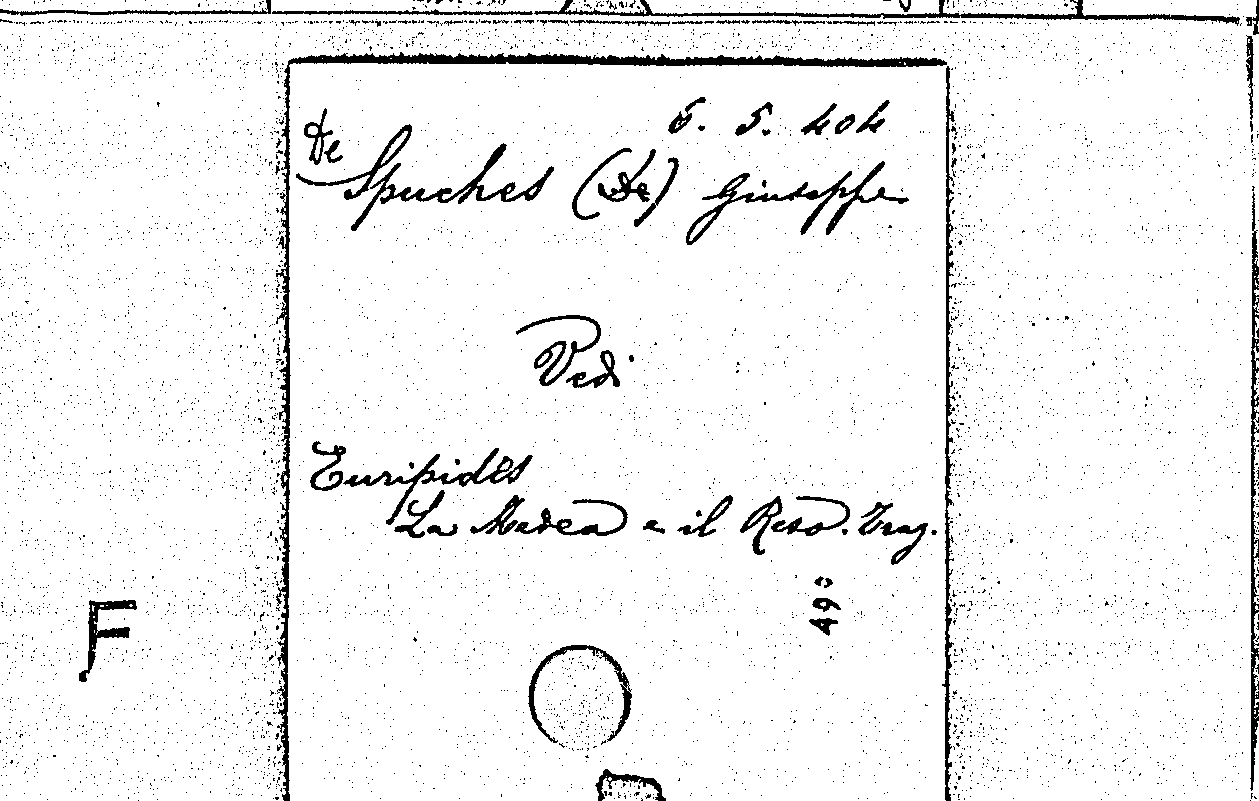 6. 5. 404
De Spuches (De) Giuseppe
Vedi
Euripides
La Medea e il Reso. Trag.
490
F